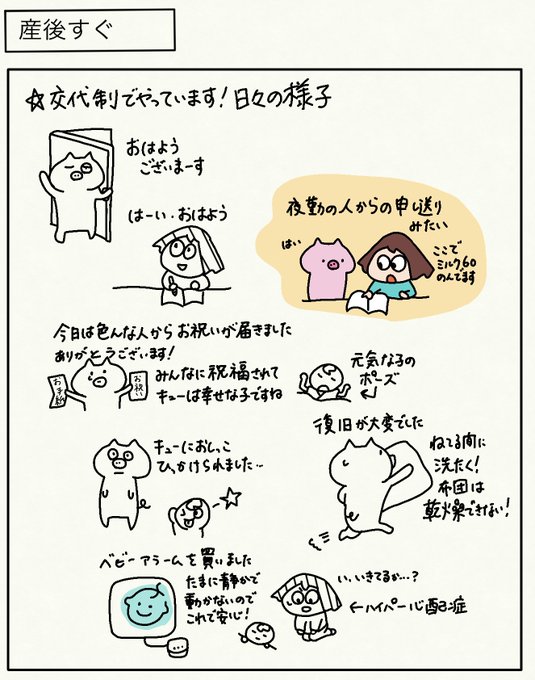 産後すぐ
☆交代制でやっています!日々の様子
おはよう
ございまーす
はーい・おはよう
夜勤の人からの申し送り
みたい
はい
ここで
ミルク60
のんでます
今日は色んな人からお祝いが届きました
ありがとうございます!
お手紙
お祝い
みんなに祝福されて
キューは幸せな子ですね
元気な子の
ポーズ
キューにおしっこ
ひっかけられました…
復旧が大変でした
ねてる間に
洗たく!
布団は
乾燥できない!
ベビーアラームを買いました
たまに静かで
動かないので
これで安心!
い、いきてるか…?
←ハイパー心配症